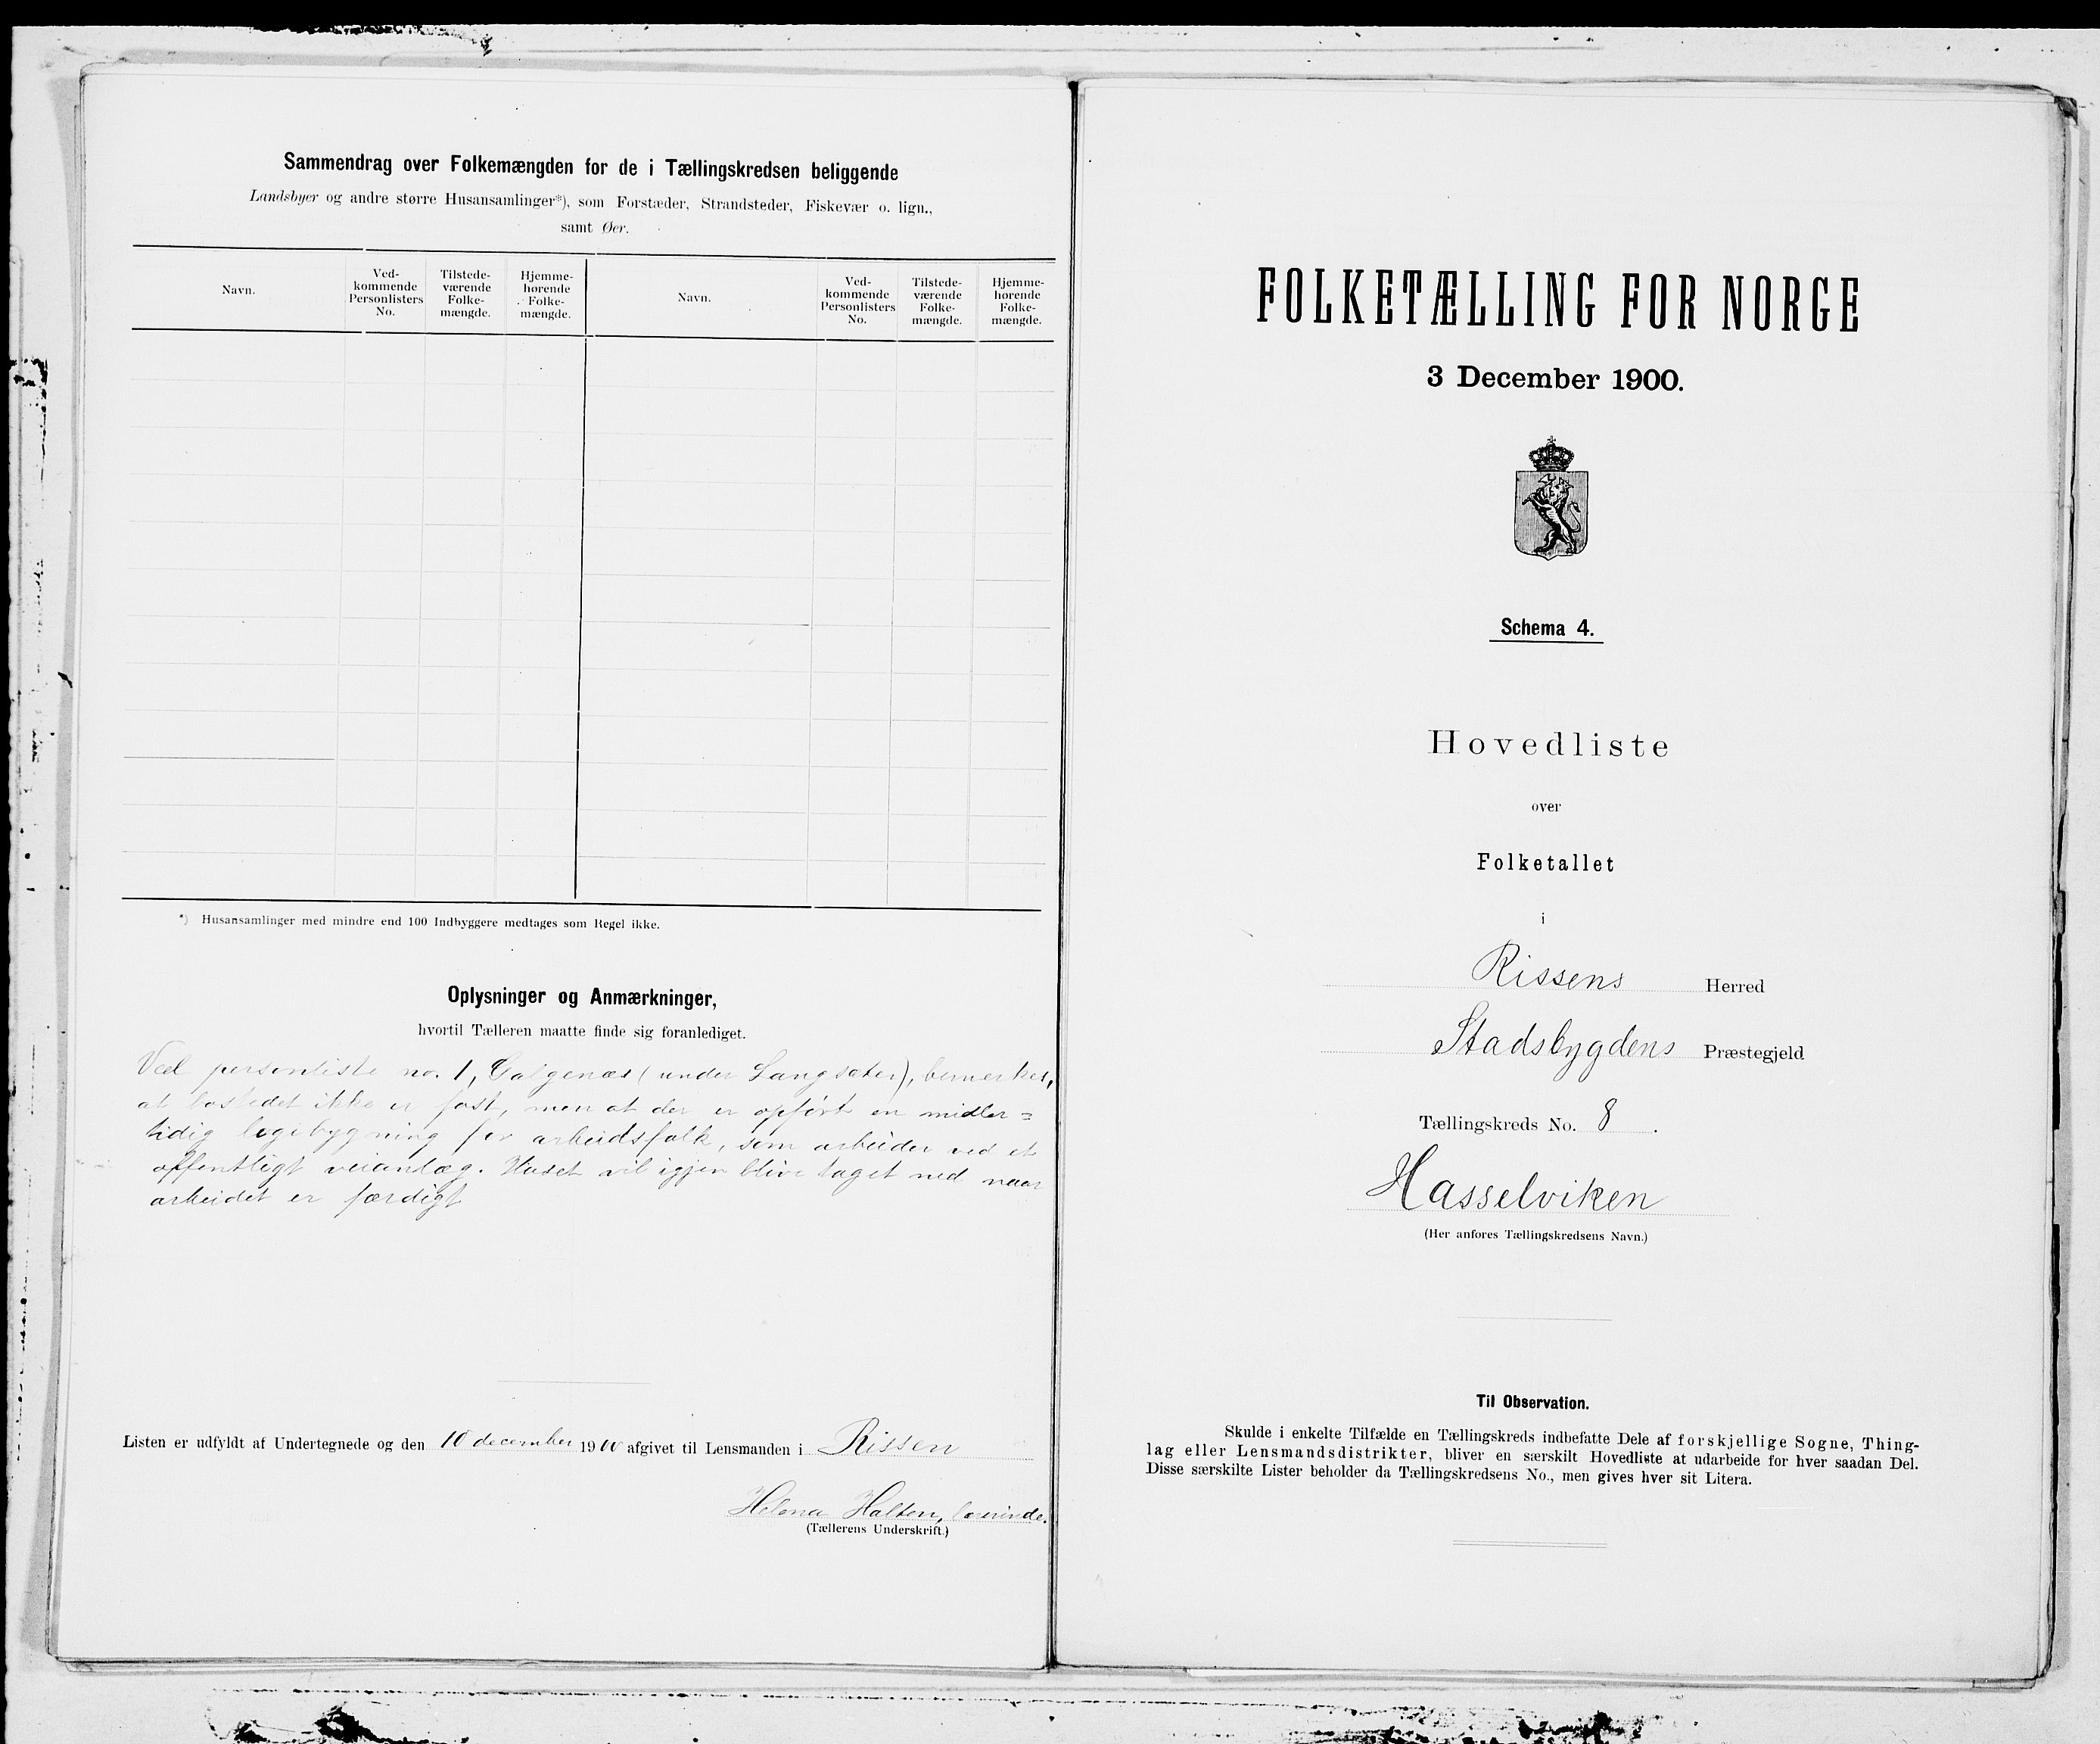 Sammendrag over Folkemængden for de i Tællingskredsen beliggende
Landsbyer og andre større Husansamlinger*), som Forstæder, Strandsteder, Fiskevær o. lign.,
samt Øer.
Navn.
Ved-
kommende
Personlisters
No.
Tilstede-
værende
Folke-
mængde.
Hjemme-
hørende
Folke-
mængde.
Navn.
Ved-
kommende
Personlisters
No.
Tilstede-
værende
Folke-
mængde.
Hjemme-
hørende
Folke-
mængde.
*) Husansamlinger med mindre end 100 Indbyggere medtages som Regel ikke.
Oplysninger og Anmærkninger,
hvortil Tælleren maatte finde sig foranlediget.
Ved personliste no. 1, Galgenæs (under Langsæter), bemerkes,
at bostedet ikke er fast, men at der er opført en midler=
tidig logibygning for arbeidsfolk, som arbeider ved et
offentligt veianlæg. Huset vil igjen blive taget ned naar
arbeidet er færdigt
Listen er udfyldt af Undertegnede og den 10 december 1900 afgivet til Lensmanden i Rissen
Helena Halten, lærerinde.
(Tællerens Underskrift.)
FOLKETÆLLING FOR NORGE
3 December 1900.
Schema 4.
Hovedliste
over
Folketallet
i
Rissens Herred
Stadsbygdens Præstegjeld
Tællingskreds No. 8.
Hasselviken
(Her anføres Tællingskredsens Navn.)
Til Observation.
Skulde i enkelte Tilfælde en Tællingskreds indbefatte Dele af forskjellige Sogne, Thing-
lag eller Lensmandsdistrikter, bliver en særskilt Hovedliste at udarbeide for hver saadan Del.
Disse særskilte Lister beholder da Tællingskredsens No., men gives hver sit Litera.